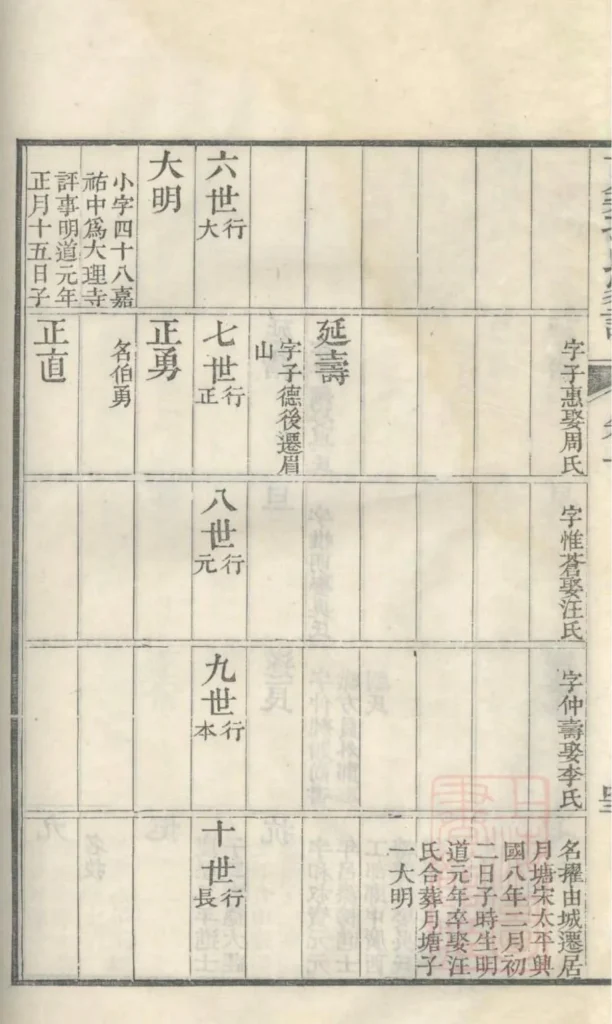 字子惠娶周氏
字惟蒼娶汪氏
字仲壽娶李氏
名擢由城遷居
月塘宋太平興
國八年二月初
二日子時生明
道元年卒娶汪
氏合葬月塘子
一大明
延壽
字子德後遷眉
山
六世
行大
七世
行正
八世
行元
九世
行本
十世
行長
大明
小字四十八嘉
祐中爲大理寺
評事明道元年
正月十五日子
正勇
名伯勇
正直